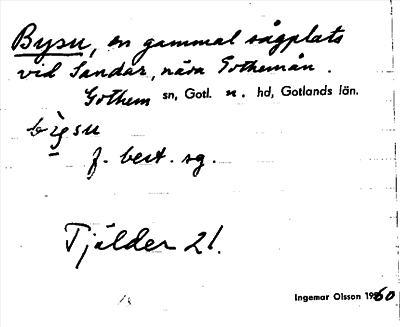 Bysu, en gammal sågplats
vid Sandar, nära Gotheman.
Gothem sn, Gotl. n. hd, Gotlands län.
f. best. sg.
Tjälder 21.
Ingemar Olsson 1960